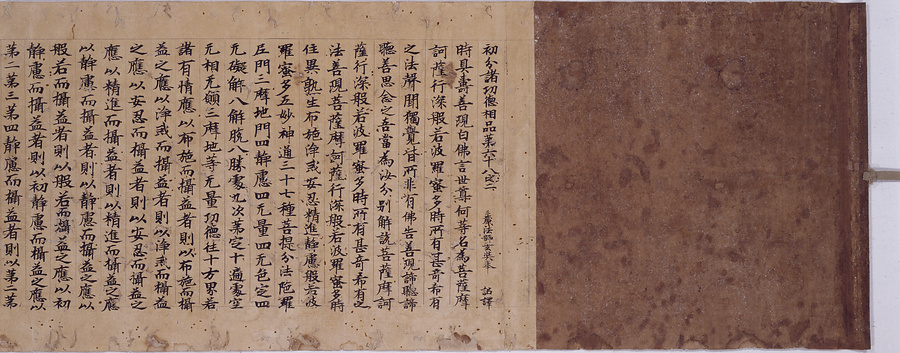 初分諸功德相品第六十八之二
三藏法師玄奘奉 詔譯
時具壽善現白佛言世尊何等名為菩薩摩
訶薩行深般若波羅蜜多時所有甚奇希有
之法聲聞獨覺皆所非有佛告善現諦聽諦
聽善思念之吾當為汝分別解說菩薩摩訶
薩行深般若波羅蜜多時所有甚奇希有之
法善現菩薩摩訶薩行深般若波羅蜜多時
住異熟生布施淨戒安忍精進靜慮般若波
羅蜜多五妙神通三十七種菩提分法陀羅
尼門三摩地門四靜慮四无量四无色定四
无礙解八解脫八勝處九次第定十遍處空
无相无願三摩地等无量功德住十方界若
諸有情應以布施而攝益者則以布施而攝
益之應以淨戒而攝益者則以淨戒而攝益
之應以安忍而攝益者則以安忍而攝益之
應以精進而攝益者則以精進而攝益之應
以靜慮而攝益者則以靜慮而攝益之應以
般若而攝益者則以般若而攝益之應以初
靜慮而攝益者則以初靜慮而攝益之應以
第二第三第四靜慮而攝益者則以第二第